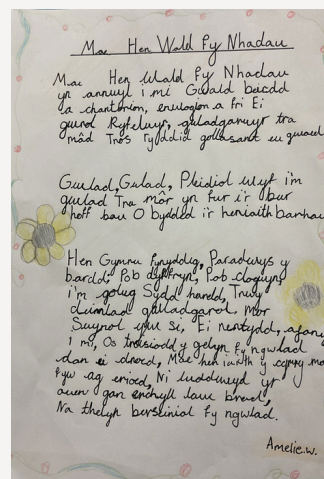 Mae Hen Wald Fy Nhadau
Mae Hen Wlad Fy Nhadau
yn annwyl i mi Gwald beirdd
a chantorion, enwogion o fri Ei
gwrol Ryfelwyr, gwladgarwyr tra
mâd Tros ryddid gollasant eu gwaed
Gwlad, Gwlad, Pleidiol wyf i'm
gwlad Tra môr yn fur i'r bur
hoff bau O bydded i'r heniaith barhau
Hen Gymru fynyddig, Paradwys y
bardd, Pob dyffryn, Pob clogwyn
i'm golwg Sydd hardd, Trwy
deimlad gwladgarol, Mor
Swynol yw si, Ei nentydd, afony
i mi, Os treisiodd y gelyn fy ngwlad
dan ei droed, Mae hen iaith y cymry mo
fyw ag erioed, Ni luddiwyd yr
awen gan erchyll law brad,
Na thelyn berseiniol fy ngwlad.
Amelie.w.